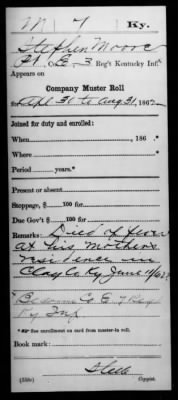 M 7 Ky.
Stephen Moore
Pt., Co. E, 3 Reg't Kentucky Inf.
Appears on
Company Muster Roll
for Apl 30 to Aug 31, 1862.
Joined for duty and enrolled:
When 186 .*
Where
Period years.*
Present or absent
Stoppage, $ 100 for
Due Gov't $ 100 for
Remarks: Died of fever
at his mother's
residence in
Clay Co Ky June 11/62
Co. E 7 Reg
Ky Inf
*See enrollment on card from muster-in roll.
Book mark:
(358c) Copyist.